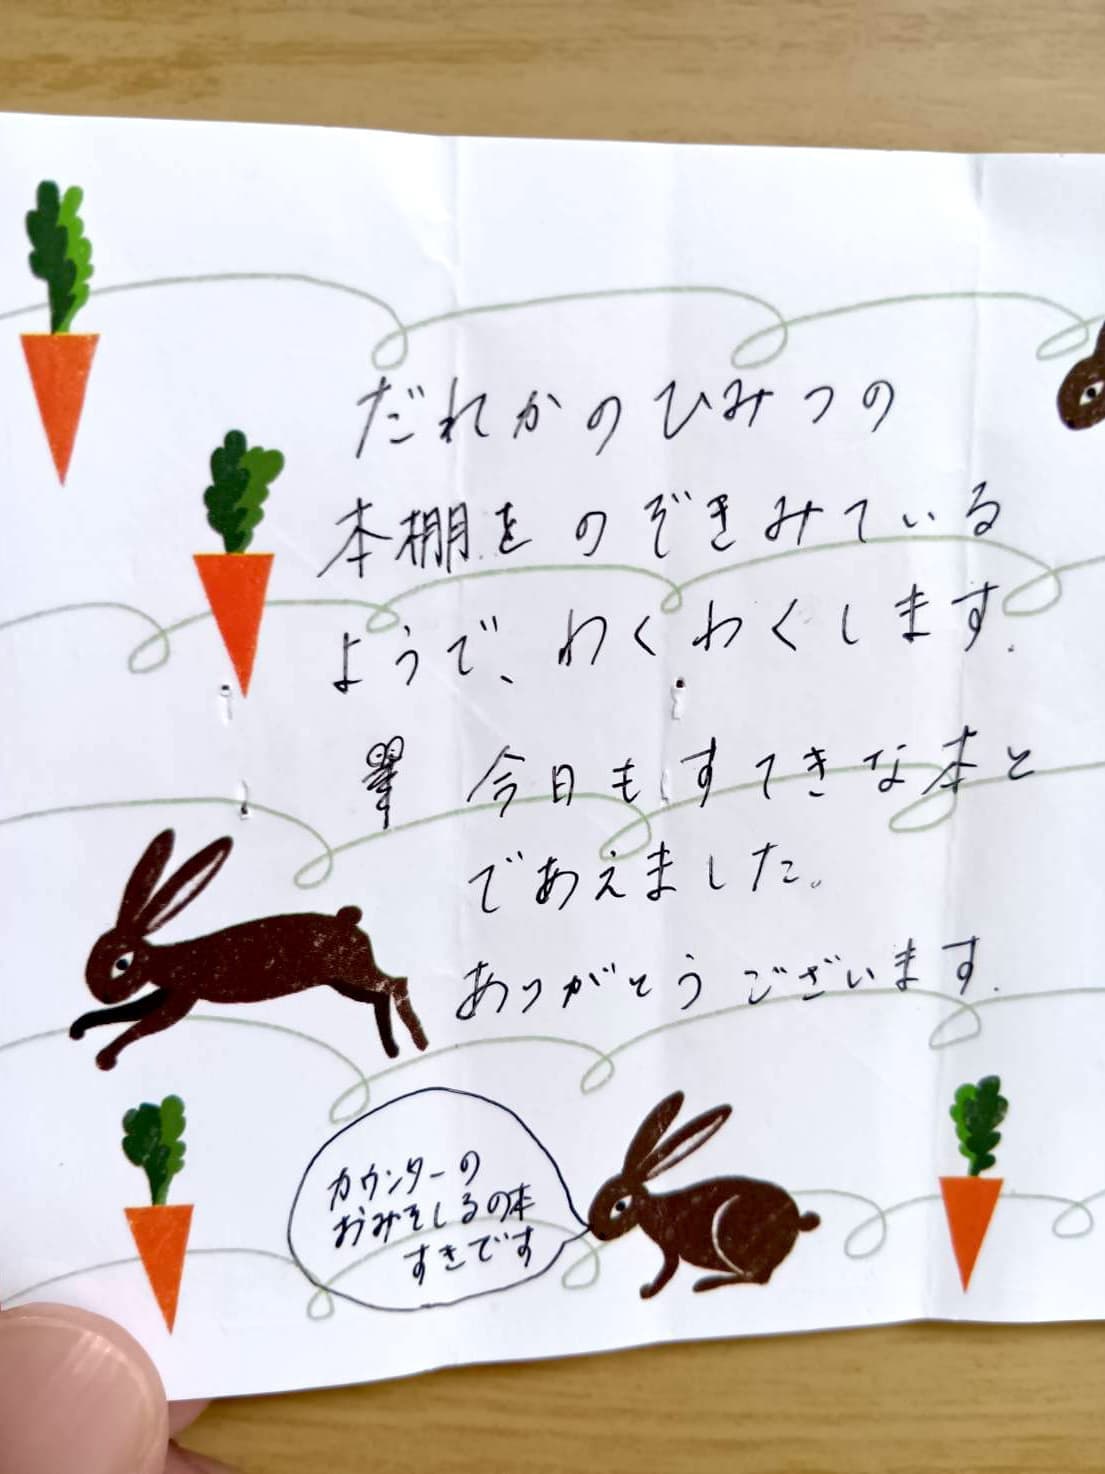 だれかのひみつの
本棚をのぞきみている
ようで、わくわくします.
今日もすてきな本と
であえました。
ありがとうございます.
カウンターの
おみそしるの本
すきです